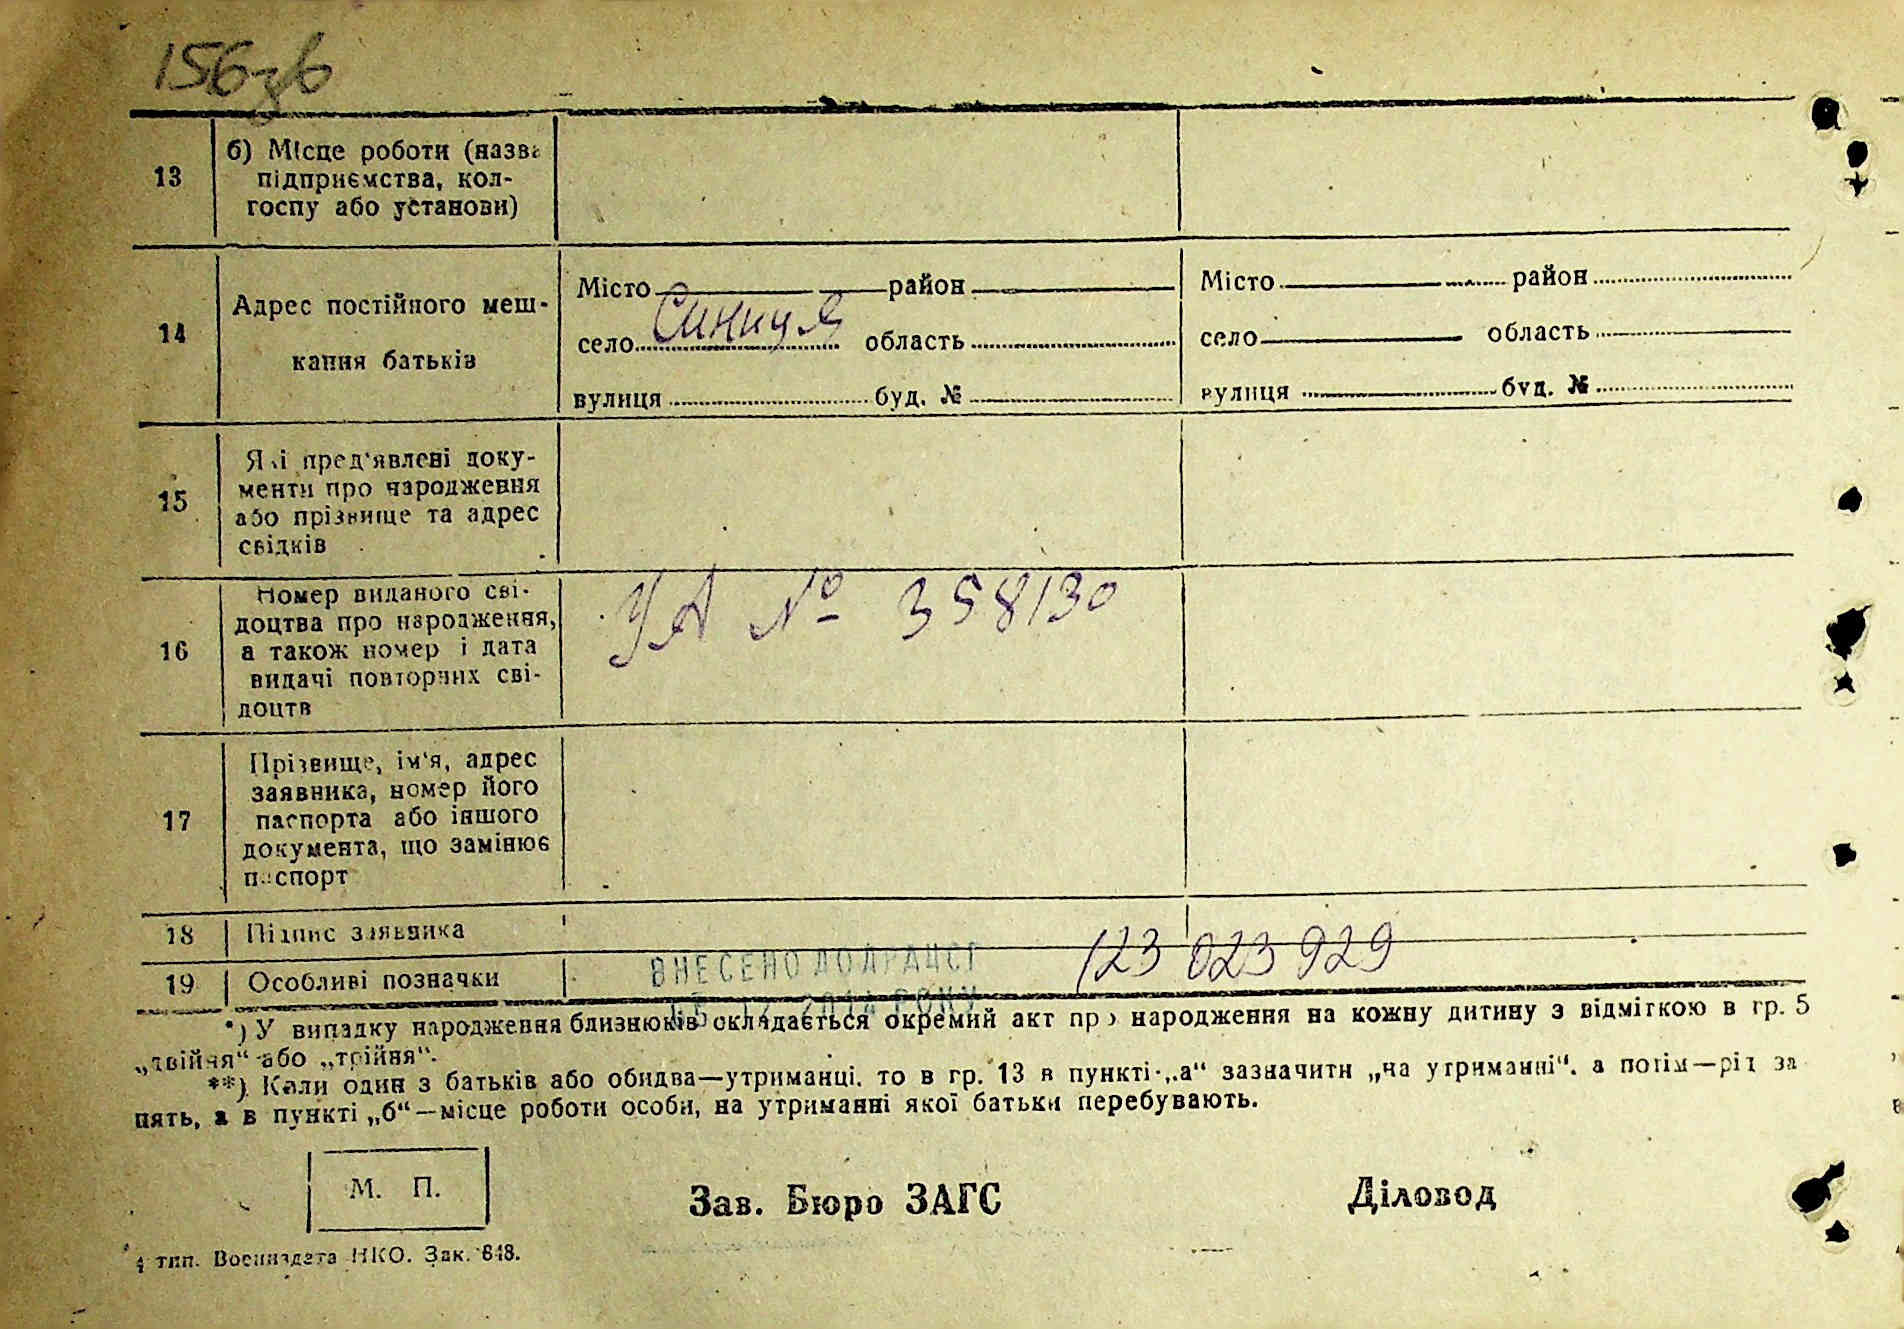 156зв
13
б) Місце роботи (назва
підприємства, кол-
госпу або установи)
14
Адрес постійного меш-
кання батьків
Місто район
село Синиця область
вулиця буд. №
Місто район
село область
вулиця буд. №
15
Які пред'явлені доку-
менти про народження
або прізвище та адрес
свідків
16
Номер виданого сві-
доцтва про народження,
а також номер і дата
видачі повторних сві-
доцтв
УА № 358130
17
Прізвище, ім'я, адрес
заявника, номер його
паспорта або іншого
документа, що замінює
паспорт
18 Підпис заявника
19 Особливі позначки
ВНЕСЕНО ДО ДРАЦСГ
12 2014 РОКУ
123 023 929
*) У випадку народження близнюків складається окремий акт про народження на кожну дитину з відміткою в гр. 5
„двійня“ або „трійня“.
**) Коли один з батьків або обидва—утриманці, то в гр. 13 в пункті „а“ зазначити „на утриманні“, а потім—рід за
нять, а в пункті „б“—місце роботи особи, на утриманні якої батьки перебувають.
М. П.
Зав. Бюро ЗАГС
Діловод
4 тип. Воениздата НКО. Зак. 648.